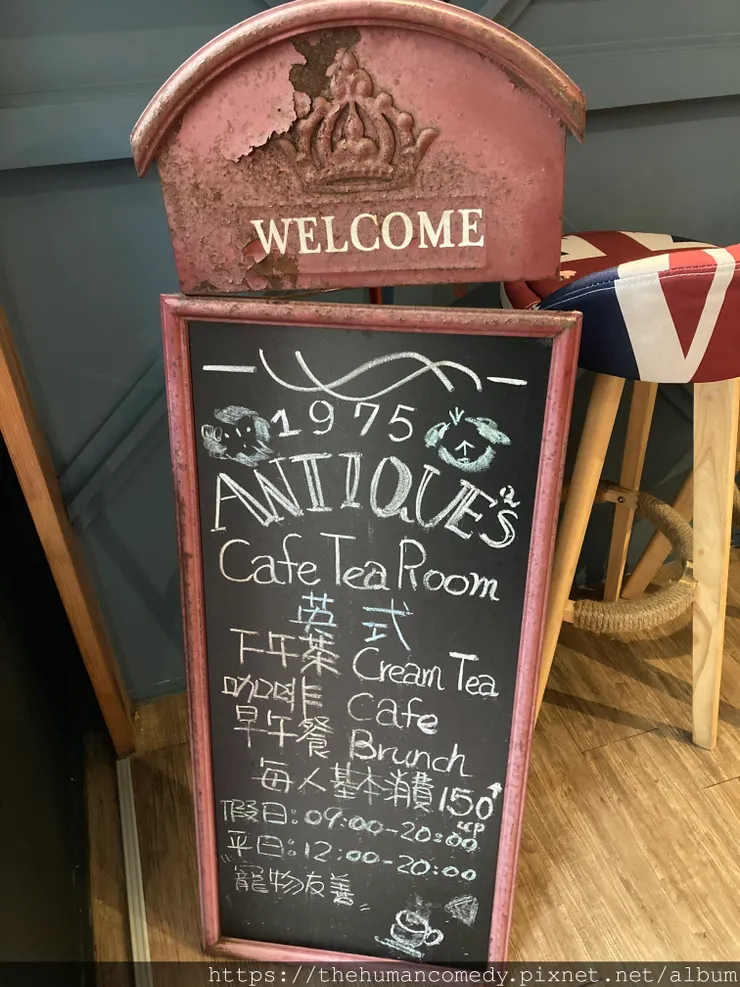 WELCOME
1975
ANTIQUE'S
Cafe Tea Room
英式
下午茶 Cream Tea
咖啡 Cafe
早午餐 Brunch
每人基本消費150↑
假日:09:00-20:00
平日:12:00-20:00
寵物友善
https://thehumancomedy.pixnet.net/album